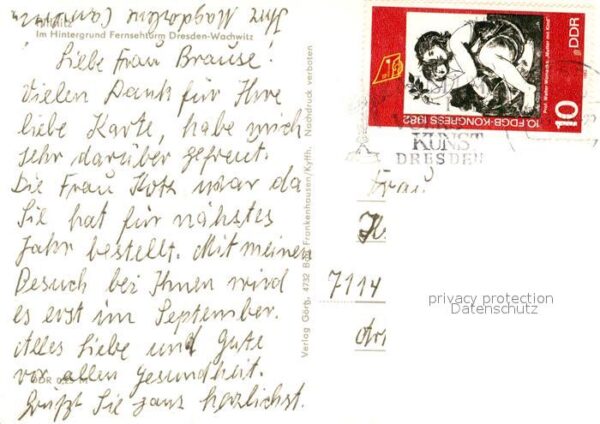 Pillnitz
Im Hintergrund Fernsehturm Dresden-Wachwitz
Liebe Frau Brause!
Vielen Dank für Ihre
liebe Karte, habe mich
sehr darüber gefreut.
Die Frau Kotz war da
Sie hat für nächstes
Jahr bestellt. Mit meinen
Besuch bei Ihnen wird
es erst im September.
Alles Liebe und Gute
vor allen Gesundheit.
Grüßt Sie ganz herzlichst.
Ihre Magdalena
Verlag Görb. 4732 Bad Frankenhausen/Kyffh. Nachdruck verboten
10. FDGB-KONGRESS 1982
DDR
10
KUNST
DRESDEN
Frau
7114
privacy protection
Datenschutz